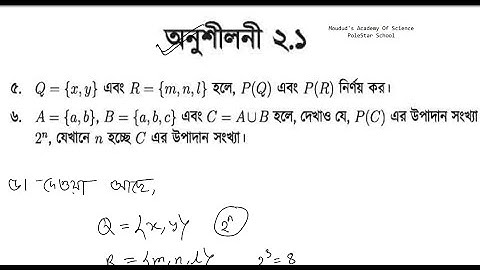 Moudud's Academy Of Science
PoleStar School
অনুশীলনী ২.১
৫. Q = {x, y} এবং R = {m, n, l} হলে, P(Q) এবং P(R) নির্ণয় কর।
৬. A = {a, b}, B = {a, b, c} এবং C = A ∪ B হলে, দেখাও যে, P(C) এর উপাদান সংখ্যা
2ⁿ, যেখানে n হচ্ছে C এর উপাদান সংখ্যা।
৫। দেওয়া আছে,
Q = {x, y} 2ⁿ
R = {m, n, l} 2³ = 8